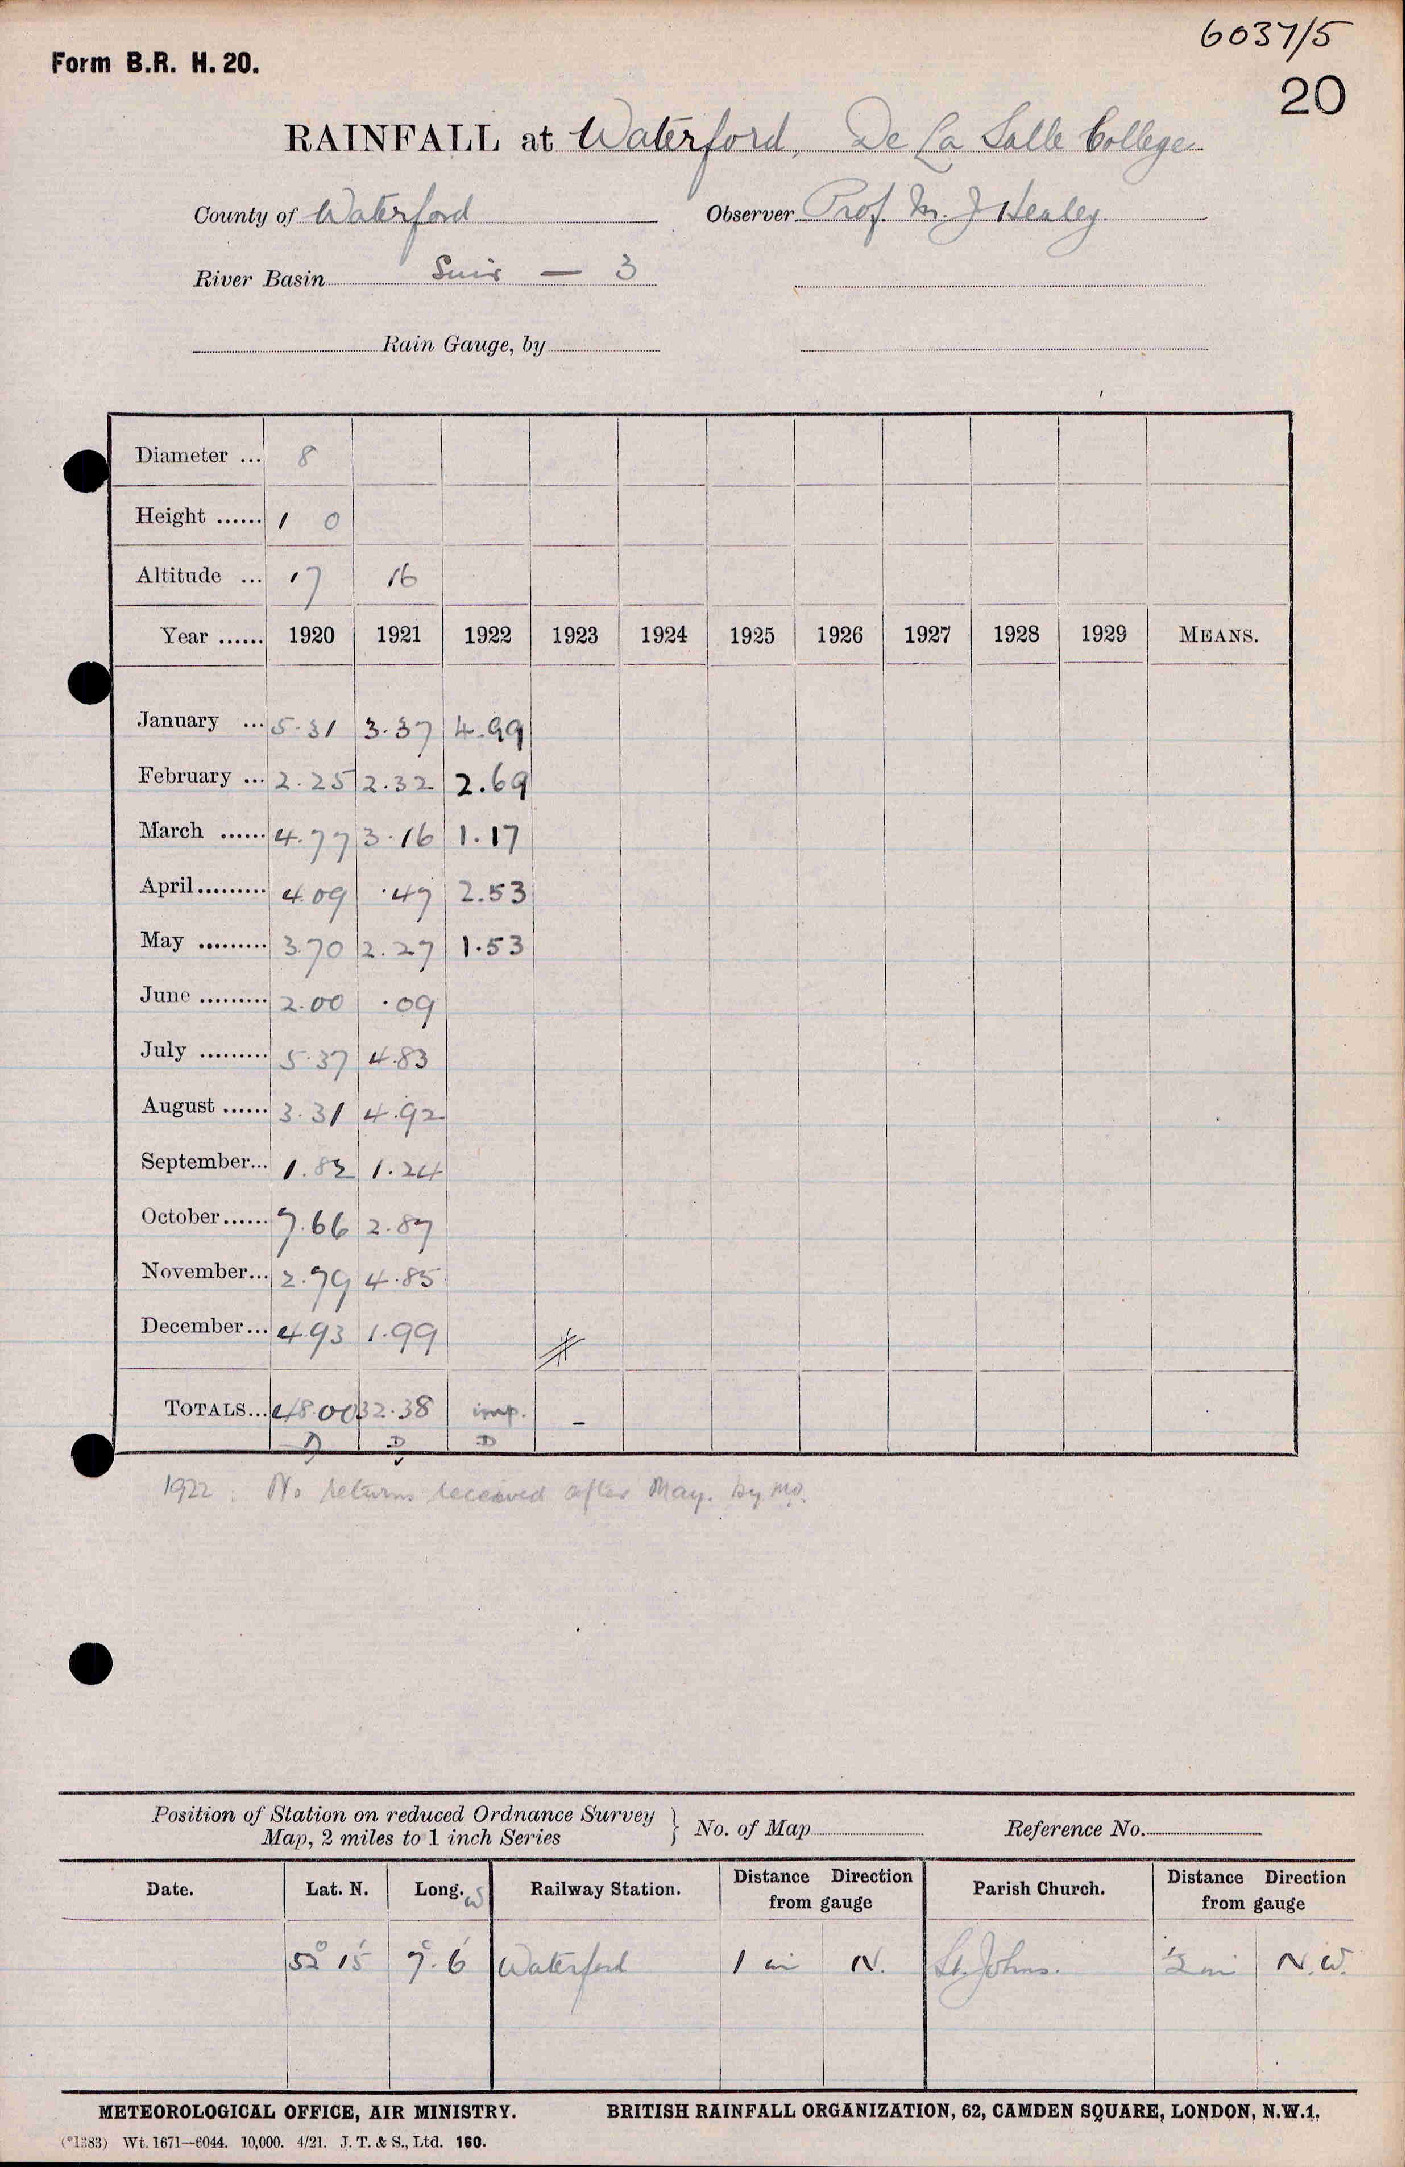 6037/5
Form B.R. H. 20.
20
RAINFALL at Waterford, De La Salle College
County of Waterford Observer Prof. M. J Healey
River Basin Suir — 3
Rain Gauge, by
Diameter ... 8
Height ...... 1 0
Altitude ... 17 16
Year ...... 1920 1921 1922 1923 1924 1925 1926 1927 1928 1929 MEANS.
January ... 5.31 3.37 4.99
February ... 2.25 2.32 2.69
March ...... 4.77 3.16 1.17
April ......... 4.09 .47 2.53
May ......... 3.70 2.27 1.53
June ......... 2.00 .09
July ......... 5.37 4.83
August ...... 3.31 4.92
September... 1.82 1.24
October...... 7.66 2.87
November... 2.79 4.85
December... 4.93 1.99
TOTALS... 48.00 32.38 imp. –
D D D
1922. No returns received after May. by MO.
Position of Station on reduced Ordnance Survey
Map, 2 miles to 1 inch Series } No. of Map Reference No.
Date. Lat. N. Long. W Railway Station. Distance Direction from gauge Parish Church. Distance Direction from gauge
52° 15' 7° 6' Waterford 1 mi N. St. Johns. 1/2 mi N.W.
METEOROLOGICAL OFFICE, AIR MINISTRY. BRITISH RAINFALL ORGANIZATION, 62, CAMDEN SQUARE, LONDON, N.W.1.
(*1383) Wt. 1671—6044. 10,000. 4/21. J. T. & S., Ltd. 160.